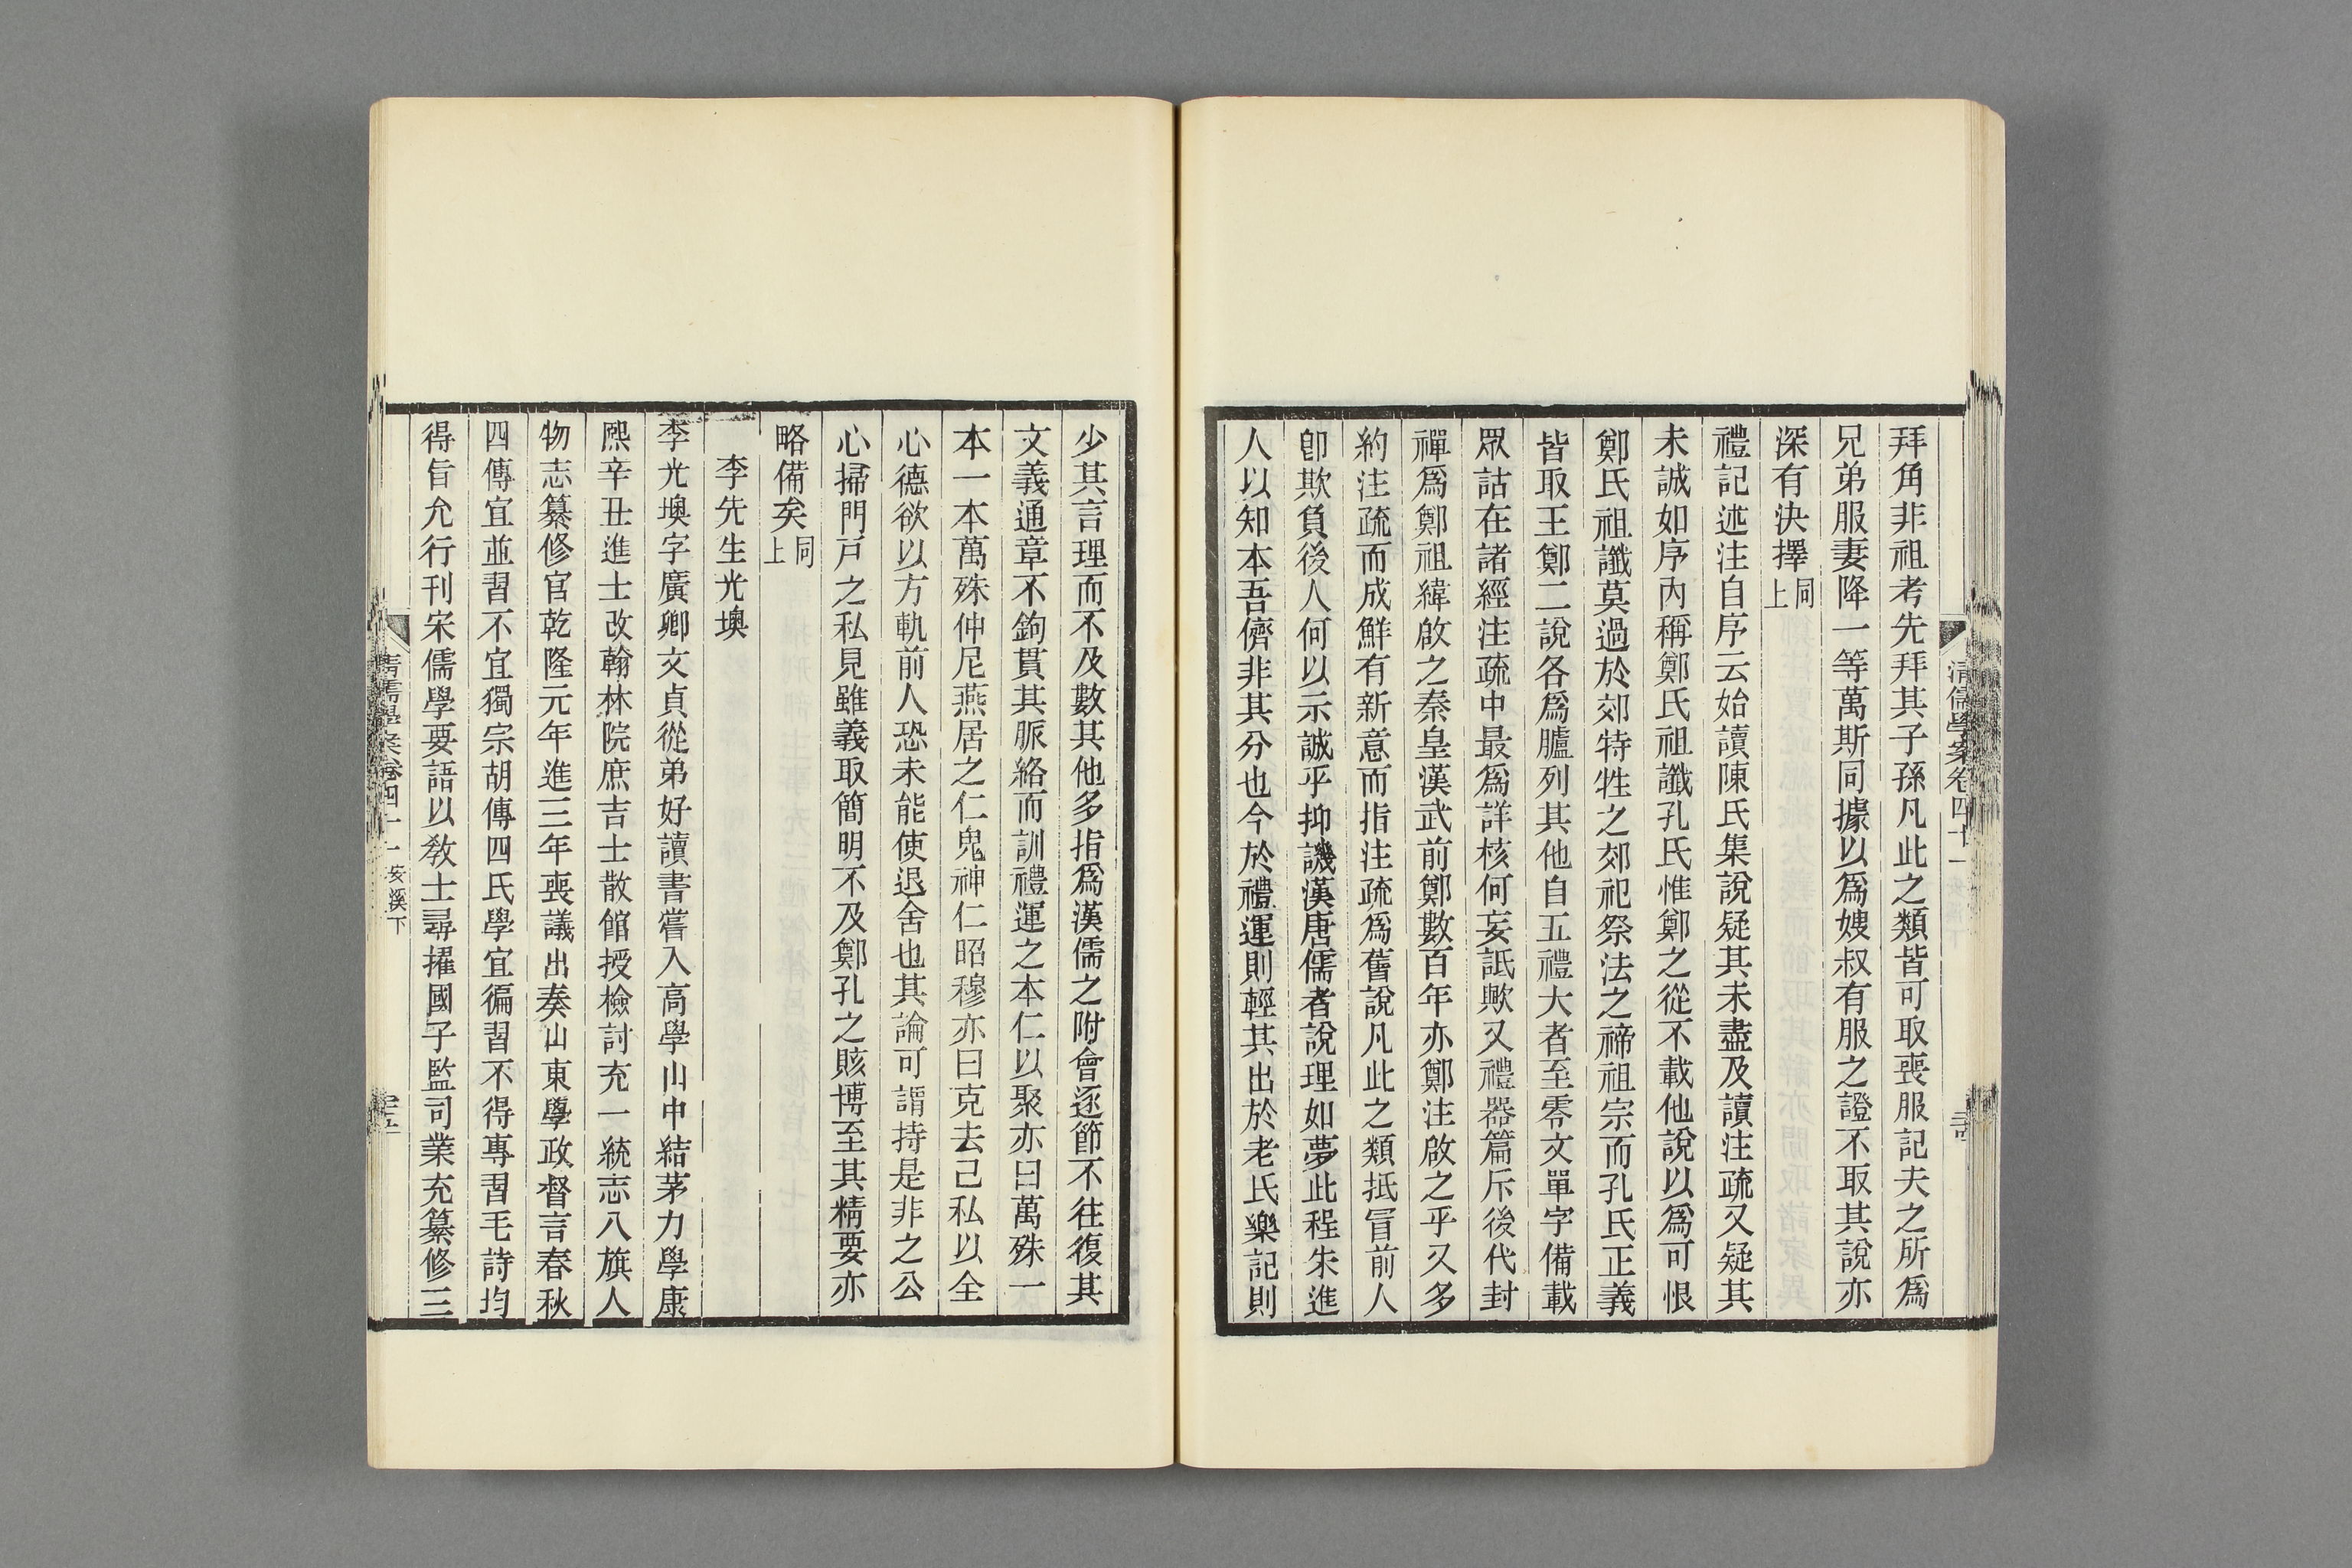 清儒學案卷四十一
拜角非祖考先拜其子孫凡此之類皆可取喪服記夫之所爲
兄弟服妻降一等萬斯同據以爲嫂叔有服之證不取其說亦
深有決擇同上
禮記述注自序云始讀陳氏集說疑其未盡及讀注疏又疑其
未誠如序內稱鄭氏祖讖孔氏惟鄭之從不載他說以爲可恨
鄭氏祖讖莫過於郊特牲之郊祀祭法之禘祖宗而孔氏正義
皆取王鄭二說各爲臚列其他自五禮大者至零文單字備載
眾詁在諸經注疏中最爲詳核何妄詆歟又禮器篇斥後代封
禪爲鄭祖緯啟之秦皇漢武前鄭數百年亦鄭注啟之乎又多
約注疏而成鮮有新意而指注疏爲舊說凡此之類抵冒前人
卽欺負後人何以示誠乎抑譏漢唐儒者說理如夢此程朱進
人以知本吾儕非其分也今於禮運則輕其出於老氏樂記則
少其言理而不及數其他多指爲漢儒之附會逐節不往復其
文義通章不鉤貫其脈絡而訓禮運之本仁以聚亦曰萬殊一
本一本萬殊仲尼燕居之仁鬼神仁昭穆亦曰克去己私以全
心德欲以方軌前人恐未能使退舍也其論可謂持是非之公
心掃門戶之私見雖義取簡明不及鄭孔之賅博至其精要亦
略備矣同上
李先生光墺
李光墺字廣卿文貞從弟好讀書嘗入高學山中結茅力學康
熙辛丑進士改翰林院庶吉士散館授檢討充一統志八旗人
物志纂修官乾隆元年進三年喪議出奏山東學政督言春秋
四傳宜並習不宜獨宗胡傳四氏學宜徧習不得專習毛詩均
得旨允行刊宋儒學要語以敎士尋擢國子監司業充纂修三
清儒學案卷四十一 安溪下